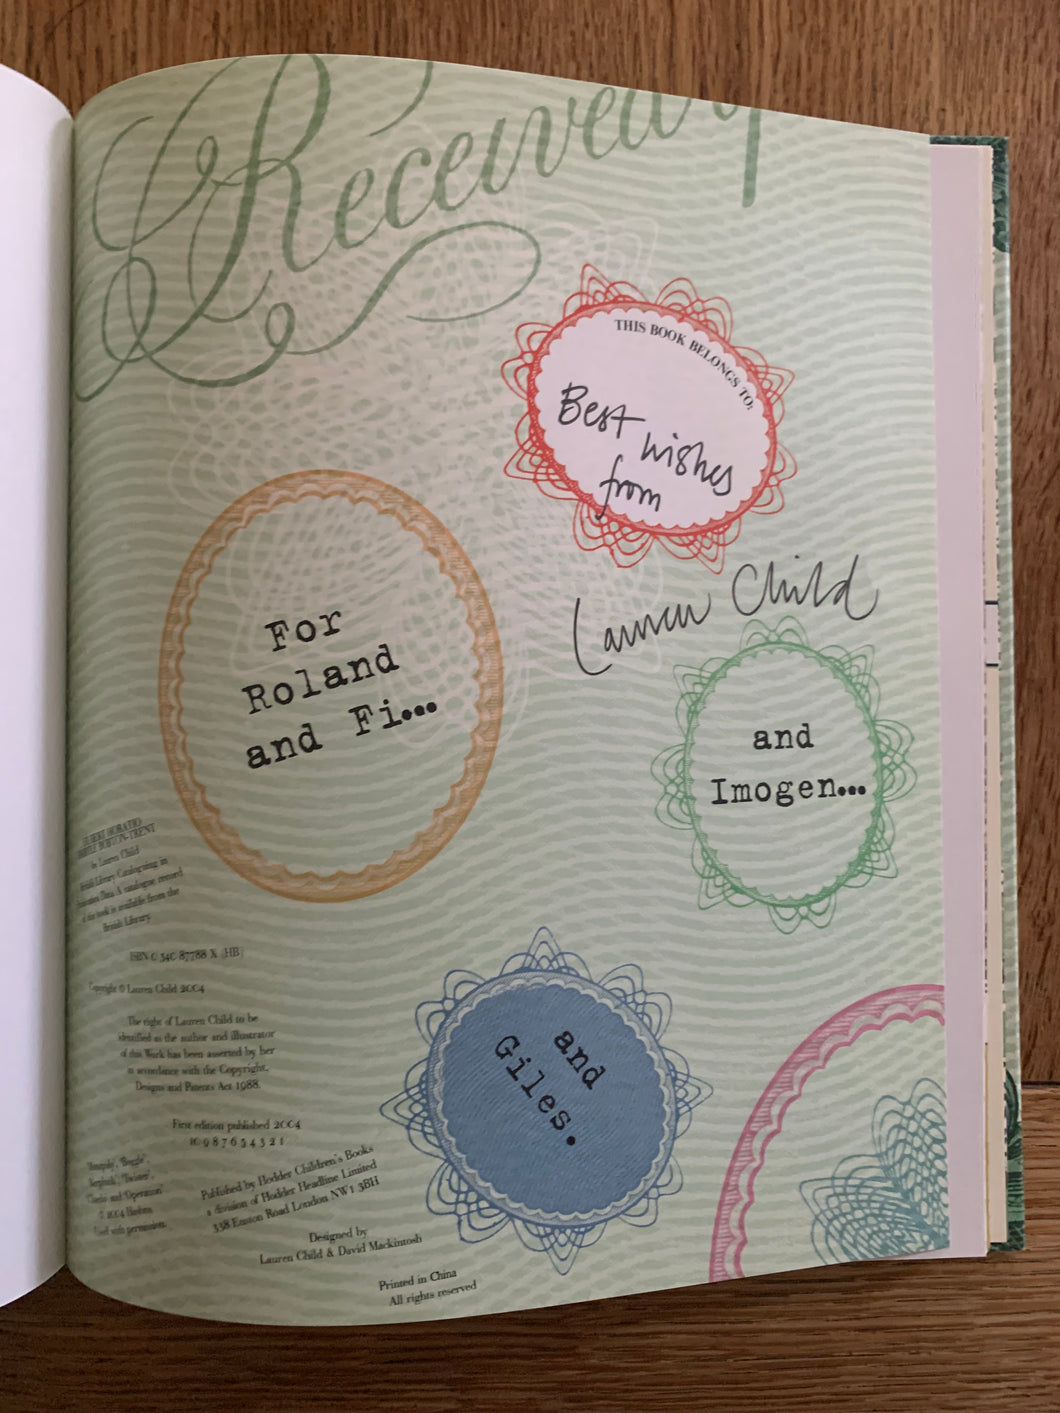 Received
THIS BOOK BELONGS TO:
Best wishes
from
Lauren Child
For
Roland
and Fi...
and
Imogen...
and
Giles.
HUBERT HORATIO
BARTLE BOBTON-TRENT
by Lauren Child
British Library Cataloguing in
Publication Data A catalogue record
of this book is available from the
British Library.
ISBN 0 340 87788 X (HB)
Copyright © Lauren Child 2004
The right of Lauren Child to be
identified as the author and illustrator
of this Work has been asserted by her
in accordance with the Copyright,
Designs and Patents Act 1988.
First edition published 2004
10 9 8 7 6 5 4 3 2 1
'Monopoly', 'Boggle',
'Twister',
'Cluedo' and 'Operation'
© 2004 Hasbro.
Used with permission.
Published by Hodder Children's Books
a division of Hodder Headline Limited
338 Euston Road London NW1 3BH
Designed by
Lauren Child & David Mackintosh
Printed in China
All rights reserved